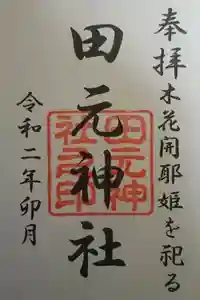 奉拝
木花開耶姫を祀る
田元神社
田元神社之印
令和二年卯月